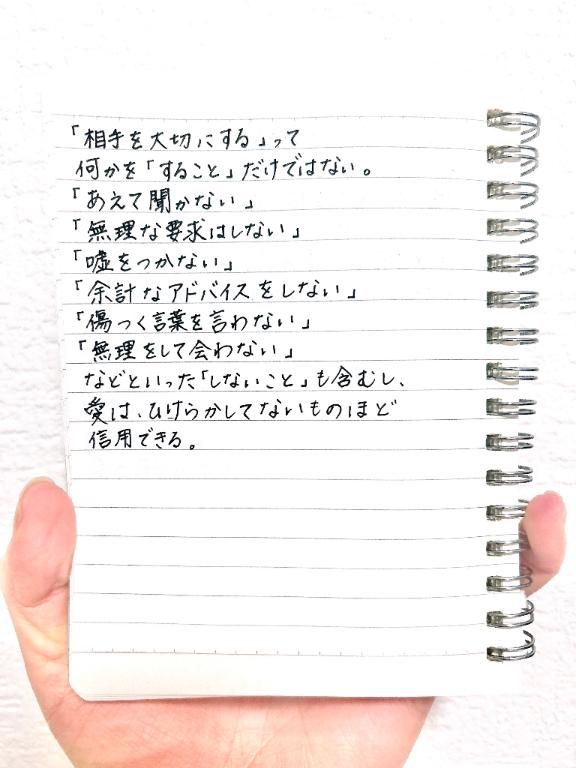 「相手を大切にする」って
何かを「すること」だけではない。
「あえて聞かない」
「無理な要求はしない」
「嘘をつかない」
「余計なアドバイスをしない」
「傷つく言葉を言わない」
「無理をして会わない」
などといった「しないこと」も含むし、
愛は、ひけらかしてないものほど
信用できる。